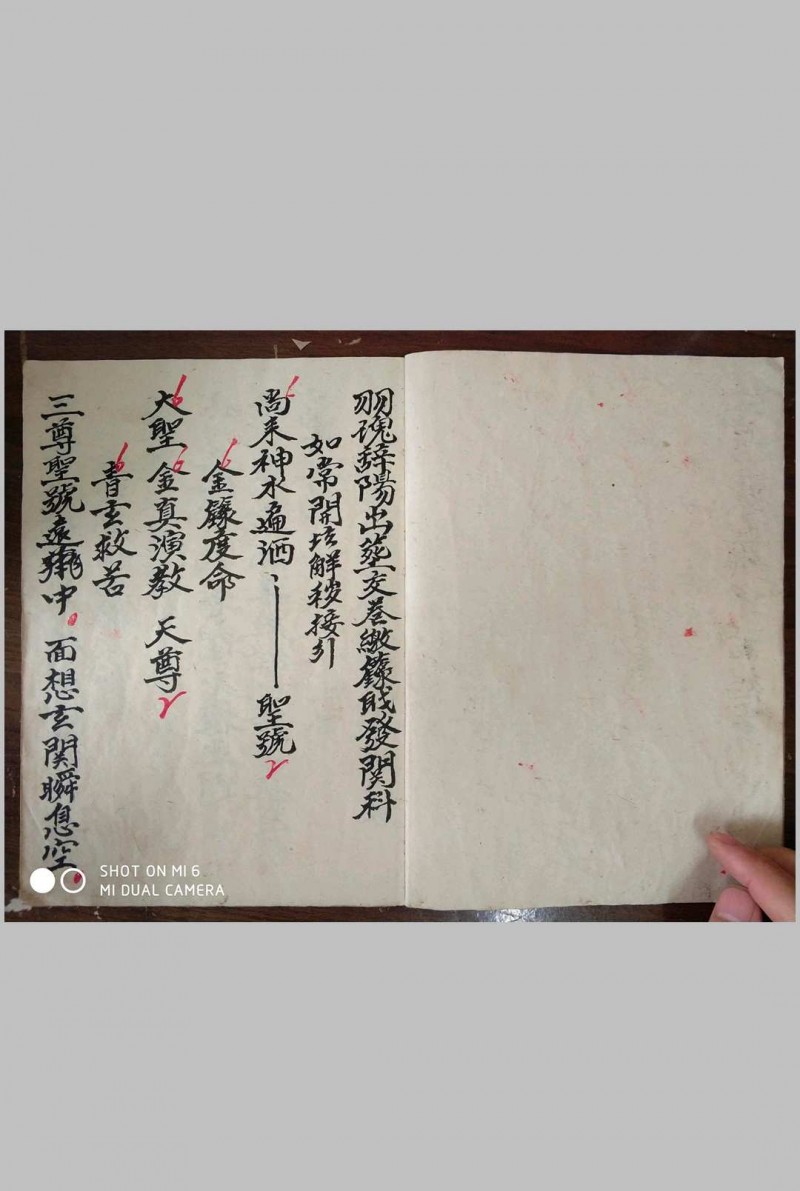 羽魂辞陽出薤交巻繳籙賎發関科
如常開坛解穢接引
啇来神水遍洒 聖號
金籙度命
大聖 金真演教 天尊
青玄救苦
三尊聖號遠 中 面想玄関瞬息空
SHOT ON MI 6
MI DUAL CAMERA